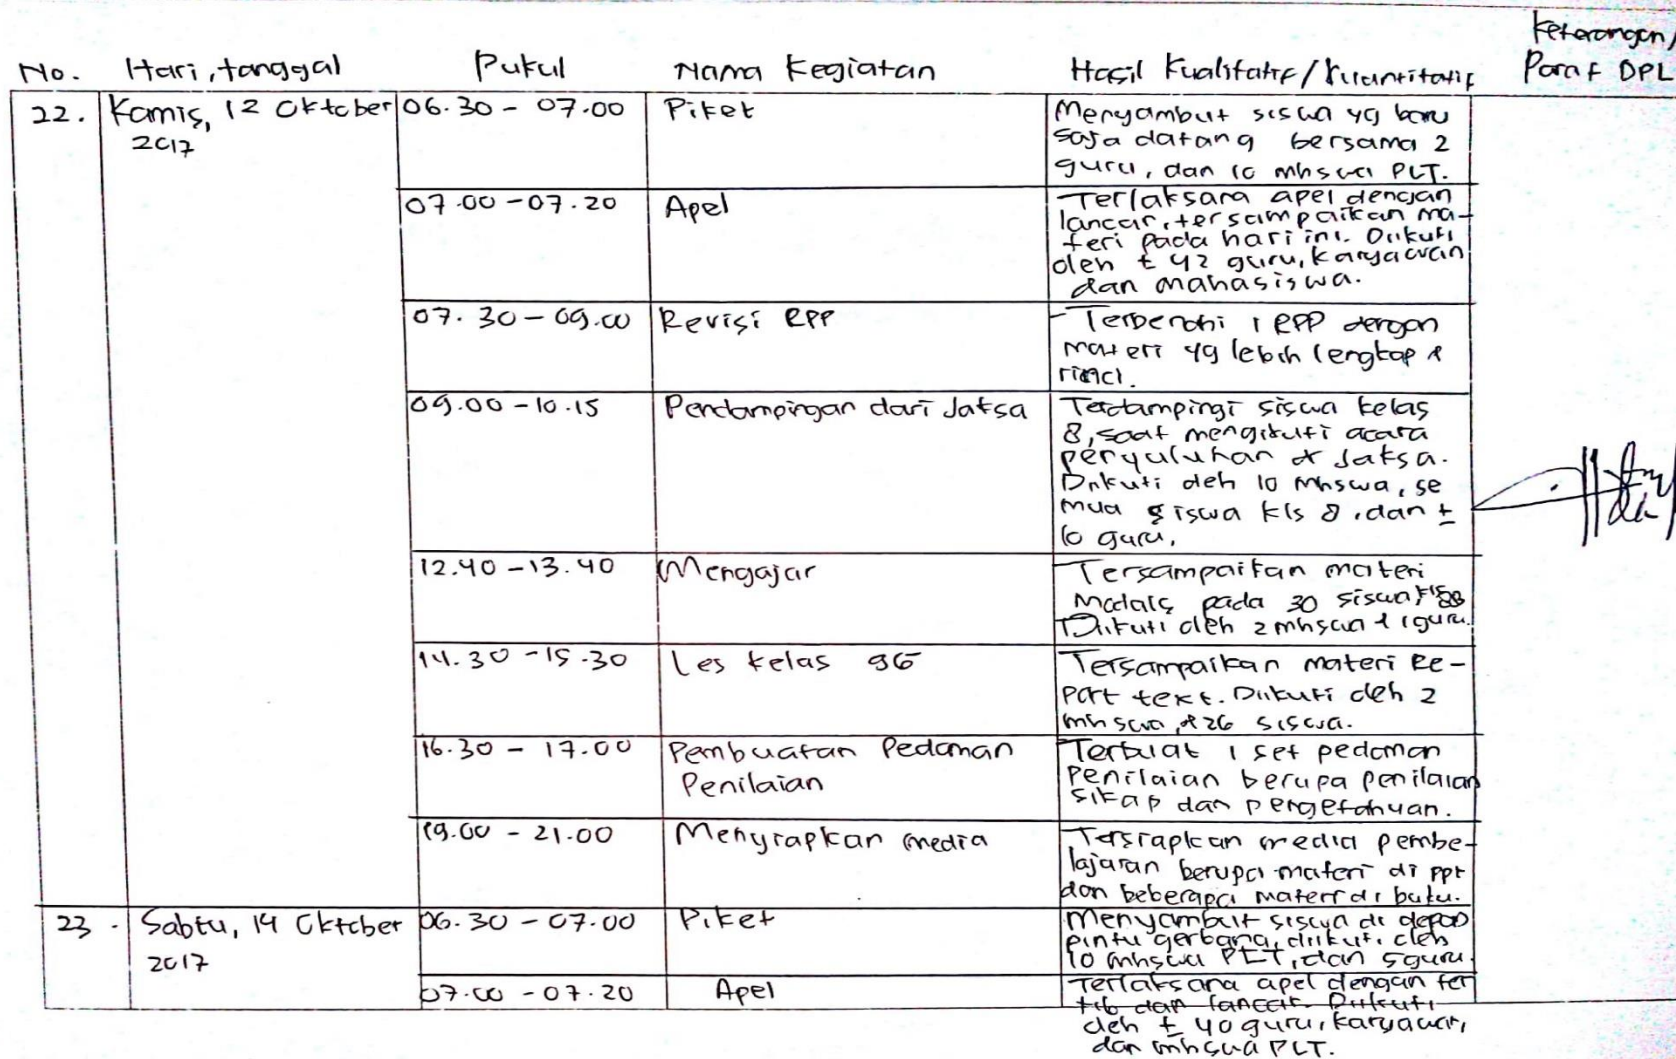 Keterangan/
No. Hari, tanggal Pukul Nama Kegiatan Hasil Kualitatif/Kuantitatif Paraf DPL
22. Kamis, 12 Oktober 2017
06.30 - 07.00 Piket
Menyambut siswa yg baru
saja datang bersama 2
guru, dan 10 mhswa PLT.
07.00 - 07.20 Apel
Terlaksana apel dengan
lancar, tersampaikan ma-
teri pada hari ini. Diikuti
oleh ± 42 guru, karyawan
dan mahasiswa.
07.30 - 09.00 Revisi RPP
Terbenahi 1 RPP dengan
materi yg lebih lengkap &
rinci.
09.00 - 10.15 Pendampingan dari Jaksa
Terdampingi siswa kelas
8, saat mengikuti acara
penyuluhan dr Jaksa.
Diikuti oleh 10 mhswa, se
mua siswa kls 8, dan ±
10 guru.
12.40 - 13.40 Mengajar
Tersampaikan materi
Modals pada 30 siswa kls 8B
Diikuti oleh 2 mhswa & 1 guru.
14.30 - 15.30 Les kelas 9G
Tersampaikan materi Re-
port text. Diikuti oleh 2
mhswa, & 26 siswa.
16.30 - 17.00 Pembuatan Pedoman
Penilaian
Terbuat 1 set pedoman
penilaian berupa penilaian
sikap dan pengetahuan.
19.00 - 21.00 Menyiapkan media
Tersiapkan media pembe-
lajaran berupa materi di ppt
dan beberapa materi di buku.
23. Sabtu, 14 Oktober
2017
06.30 - 07.00 Piket
Menyambut siswa di depan
pintu gerbang, diikuti oleh
10 mhswa PLT, dan 5 guru.
07.00 - 07.20 Apel
Terlaksana apel dengan ter
tib dan lancar. Diikuti
oleh ± 40 guru, karyawan,
dan mhswa PLT.